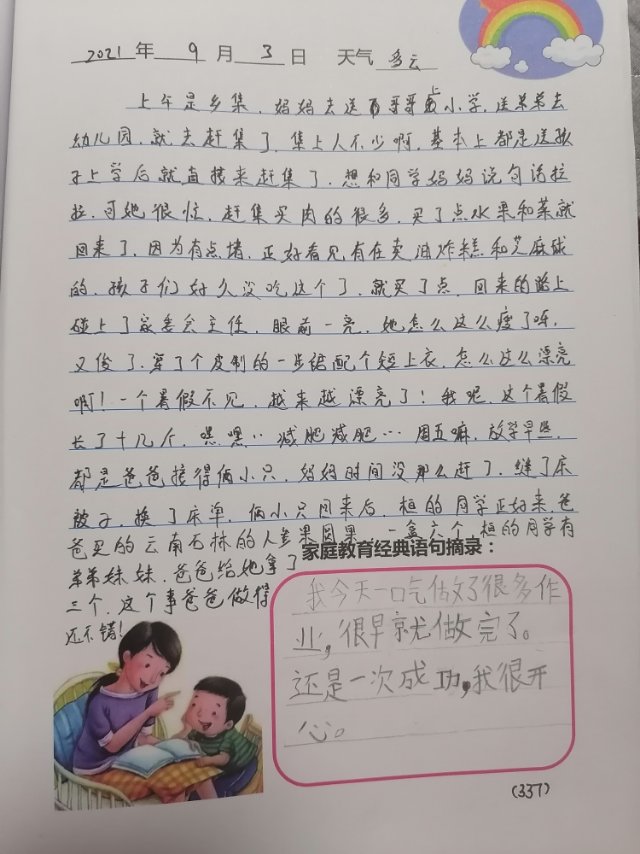 2021 年 9 月 3 日 天气 多云
上午是乡集，妈妈去送哥哥上小学，送弟弟去
幼儿园，就去赶集了，集上人不少啊，基本上都是送孩
子上学后就直接来赶集了，想和同学妈妈说句话拉
拉，可她很忙，赶集买肉的很多，买了点水果和菜就
回来了，因为有点堵，正好看见有在卖油炸糕和芝麻球
的，孩子们好久没吃这个了，就买了点，回来的路上
碰上了家委会主任，眼前一亮，她怎么这么瘦了呀，
又俊了，穿了个皮制的一步裙配个短上衣，怎么这么漂亮
啊！一个暑假不见，越来越漂亮了！我呢，这个暑假
长了十几斤，嘿嘿…减肥减肥…周五嘛，放学早些，
都是爸爸接得俩小只，妈妈时间没那么赶了，缝了床
被子，换了床单，俩小只回来后，桓的同学正好来，爸
爸买的云南石林的人参果因果，一盒六个，桓的同学有
弟弟妹妹，爸爸给她拿了
三个，这个事爸爸做得
还不错！
家庭教育经典语句摘录：
我今天一口气做了很多作
业，很早就做完了。
还是一次成功，我很开
心。
(337)